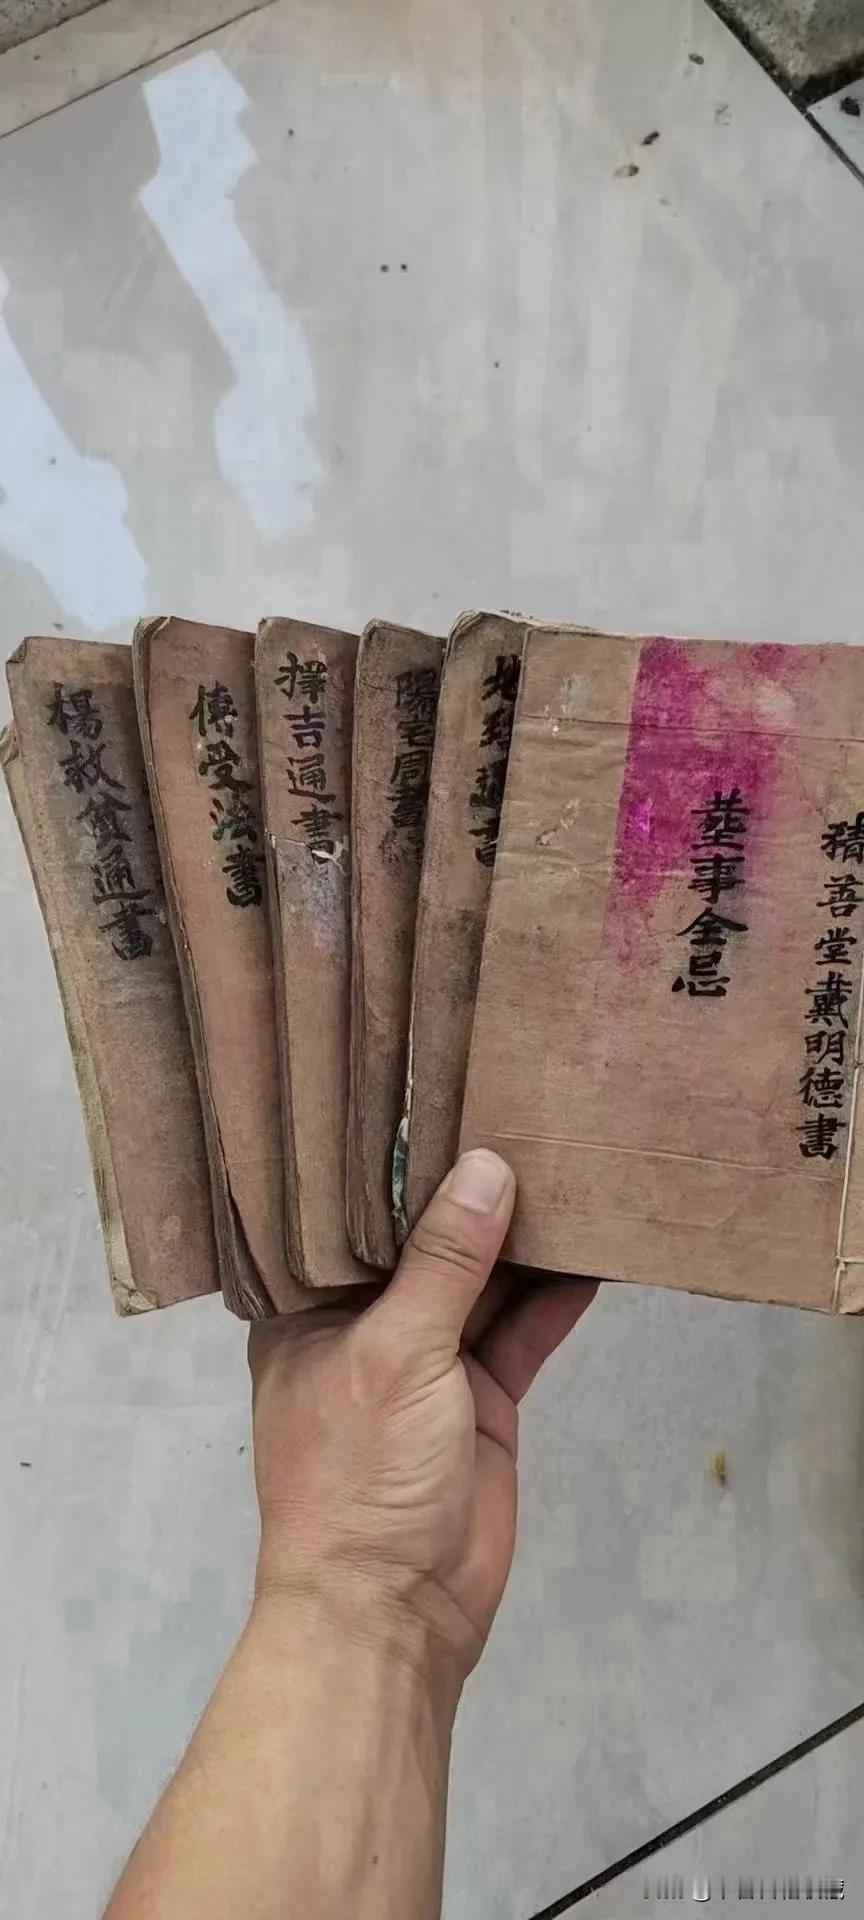 楊救貧通書
傳受法書
擇吉通書
陽宅周書
地理通書
塟事全忌
積善堂戴明德書